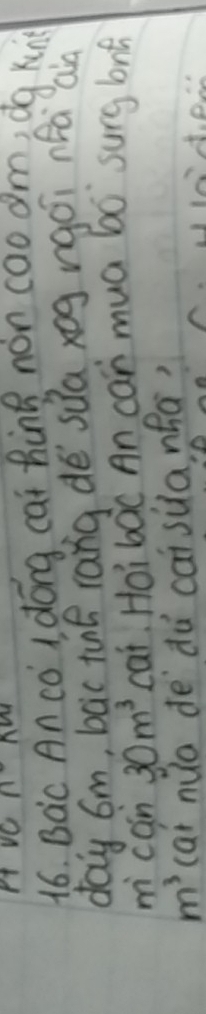 16. Bác An có 1 đống cát hình nón cao 2m, đg kính
đáy 6m, bác tính rằng để sửa xog ngôi nhà của
mì cần 30m³ cát. Hỏi bác An cần mua bổ sung bnh
m³ cát nữa để đủ cát sửa nhà,